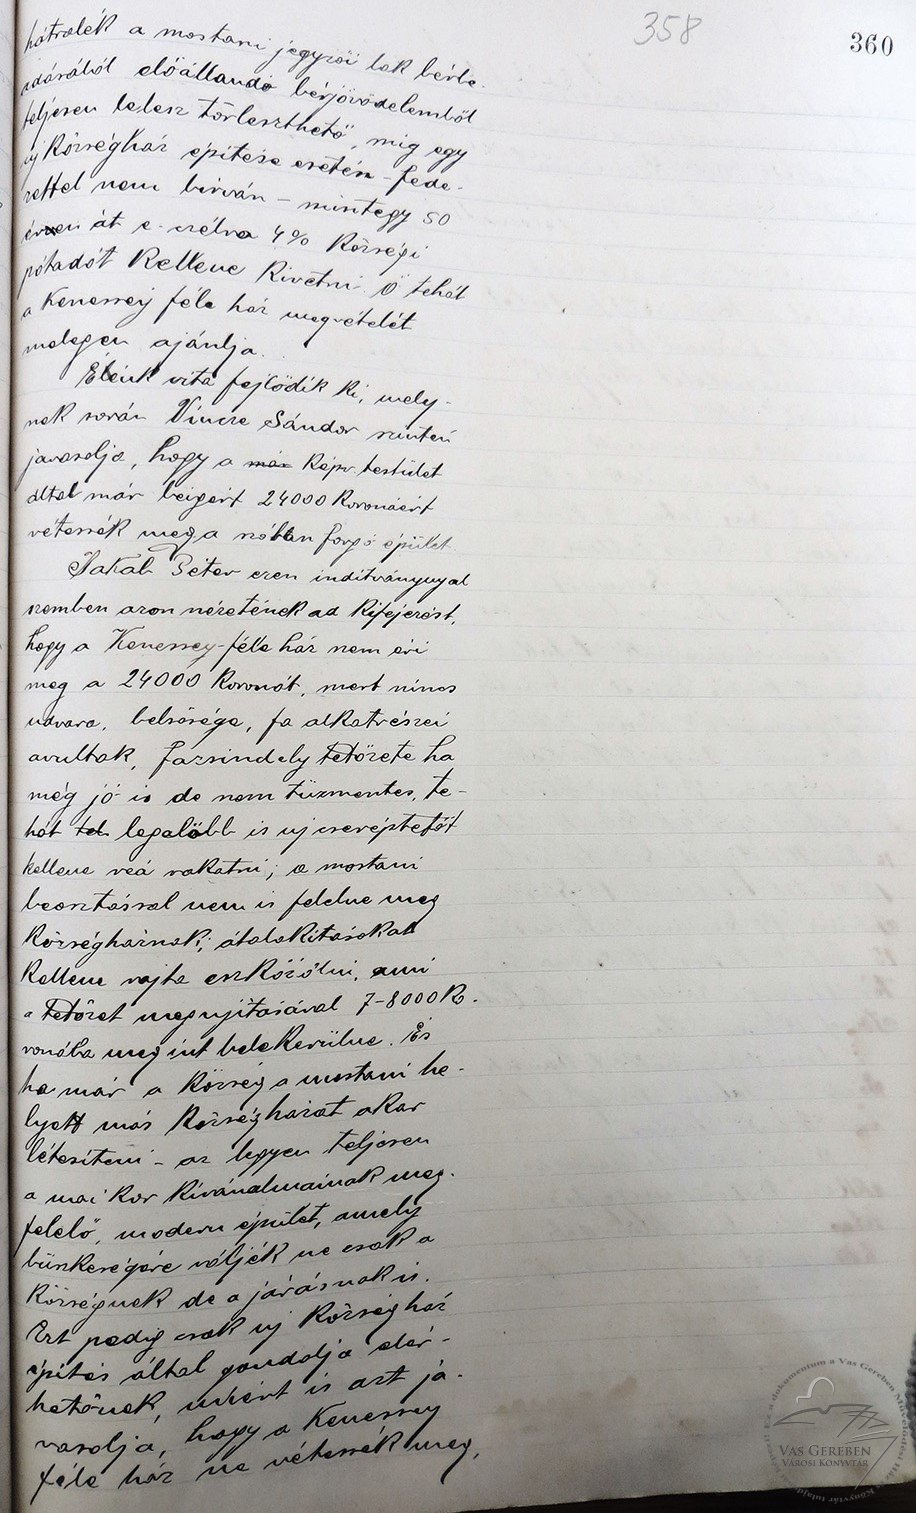 358
360
hátralék a mostani jegyzői lak bérbe
adásából előállandó bérjövedelemből
teljesen lelesz törleszthető, mig egy
uj községház épitése esetén - fede-
zettel nem birván - mintegy 50
éven át e. célra 4% községi
pótadót kellene kivetni. Ő tehát
a Kenessey féle ház megvételét
melegen ajánlja.
Élénk vita fejlődik ki, mely-
nek során Vincze Sándor szintén
javasolja, hogy a már képv. testület
által már beigért 24000 koronáért
vétessék meg a szóban forgó épület.
Jakab Péter ezen inditványnyal
szemben azon nézetének ad kifejezést,
hogy a Kenessey-féle ház nem éri
meg a 24000 koronát, mert nincs
udvara, belsősége, fa alkatrészei
avultak, fazsindely tetőzete ha
még jó is de nem tüzmentes, te-
hát legalább is uj cseréptetőt
kellene reá rakatni; a mostani
beosztással nem is felelne meg
községháznak; átalakitásokat
kellene rajta eszközölni, ami
a tetőzet megujitásával 7-8000 ko-
ronába megint belekerülne. És
ha már a község a mostani he-
lyett más községházat akar
létesiteni - az legyen teljesen
a mai kor kivánalmainak meg-
felelő, modern épület, amely
büszkeségére váljék ne csak a
községnek de a járásnak is.
Ezt pedig csak uj községház
épités által gondolja elér-
hetőnek, miért is azt ja-
vasolja, hogy a Kenessey
féle ház ne vétessék meg,
VAS GEREBEN
VÁROSI KÖNYVTÁR